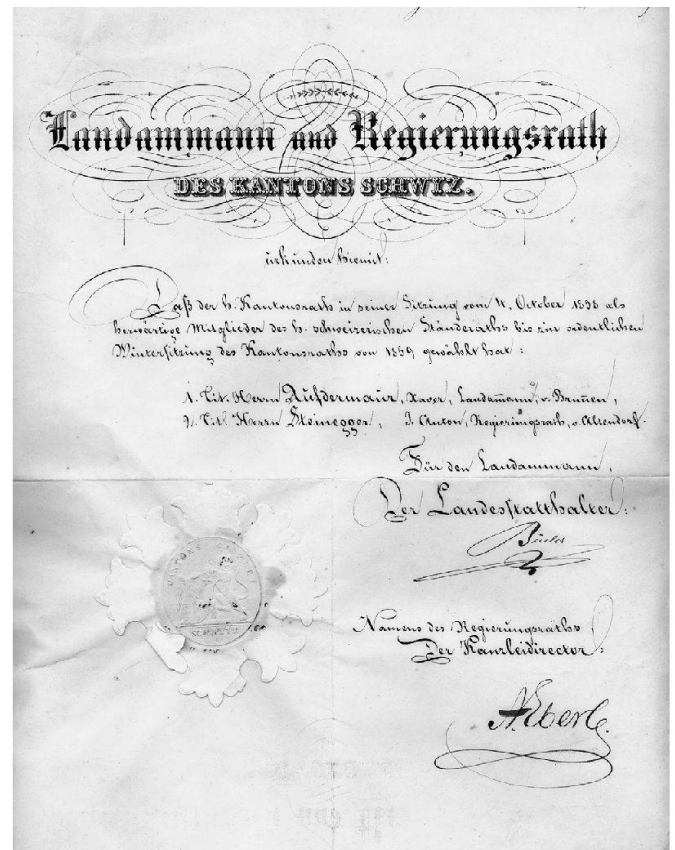 Landammann und Regierungsrath
DES KANTONS SCHWYZ.
urkunden hiemit:
Daß der h. Kantonsrath in seiner Sitzung vom 4. October 1858 als
herwärtige Mitglieder des h. schweizerischen Ständeraths bis zur ordentlichen
Wintersitzung des Kantonsraths von 1859 gewählt hat:
1. Tit. Herrn Aufdermaur, Xaver, Landam̄ann, v. Brun̄en,
2. Tit. Herrn Steinegger, J. Anton, Regierungsrath, v. Altendorf.
Für den Landammann,
Der Landesstatthalter:
Namens des Regierungsraths
Der Kanzleidirector:
A. Eberle.